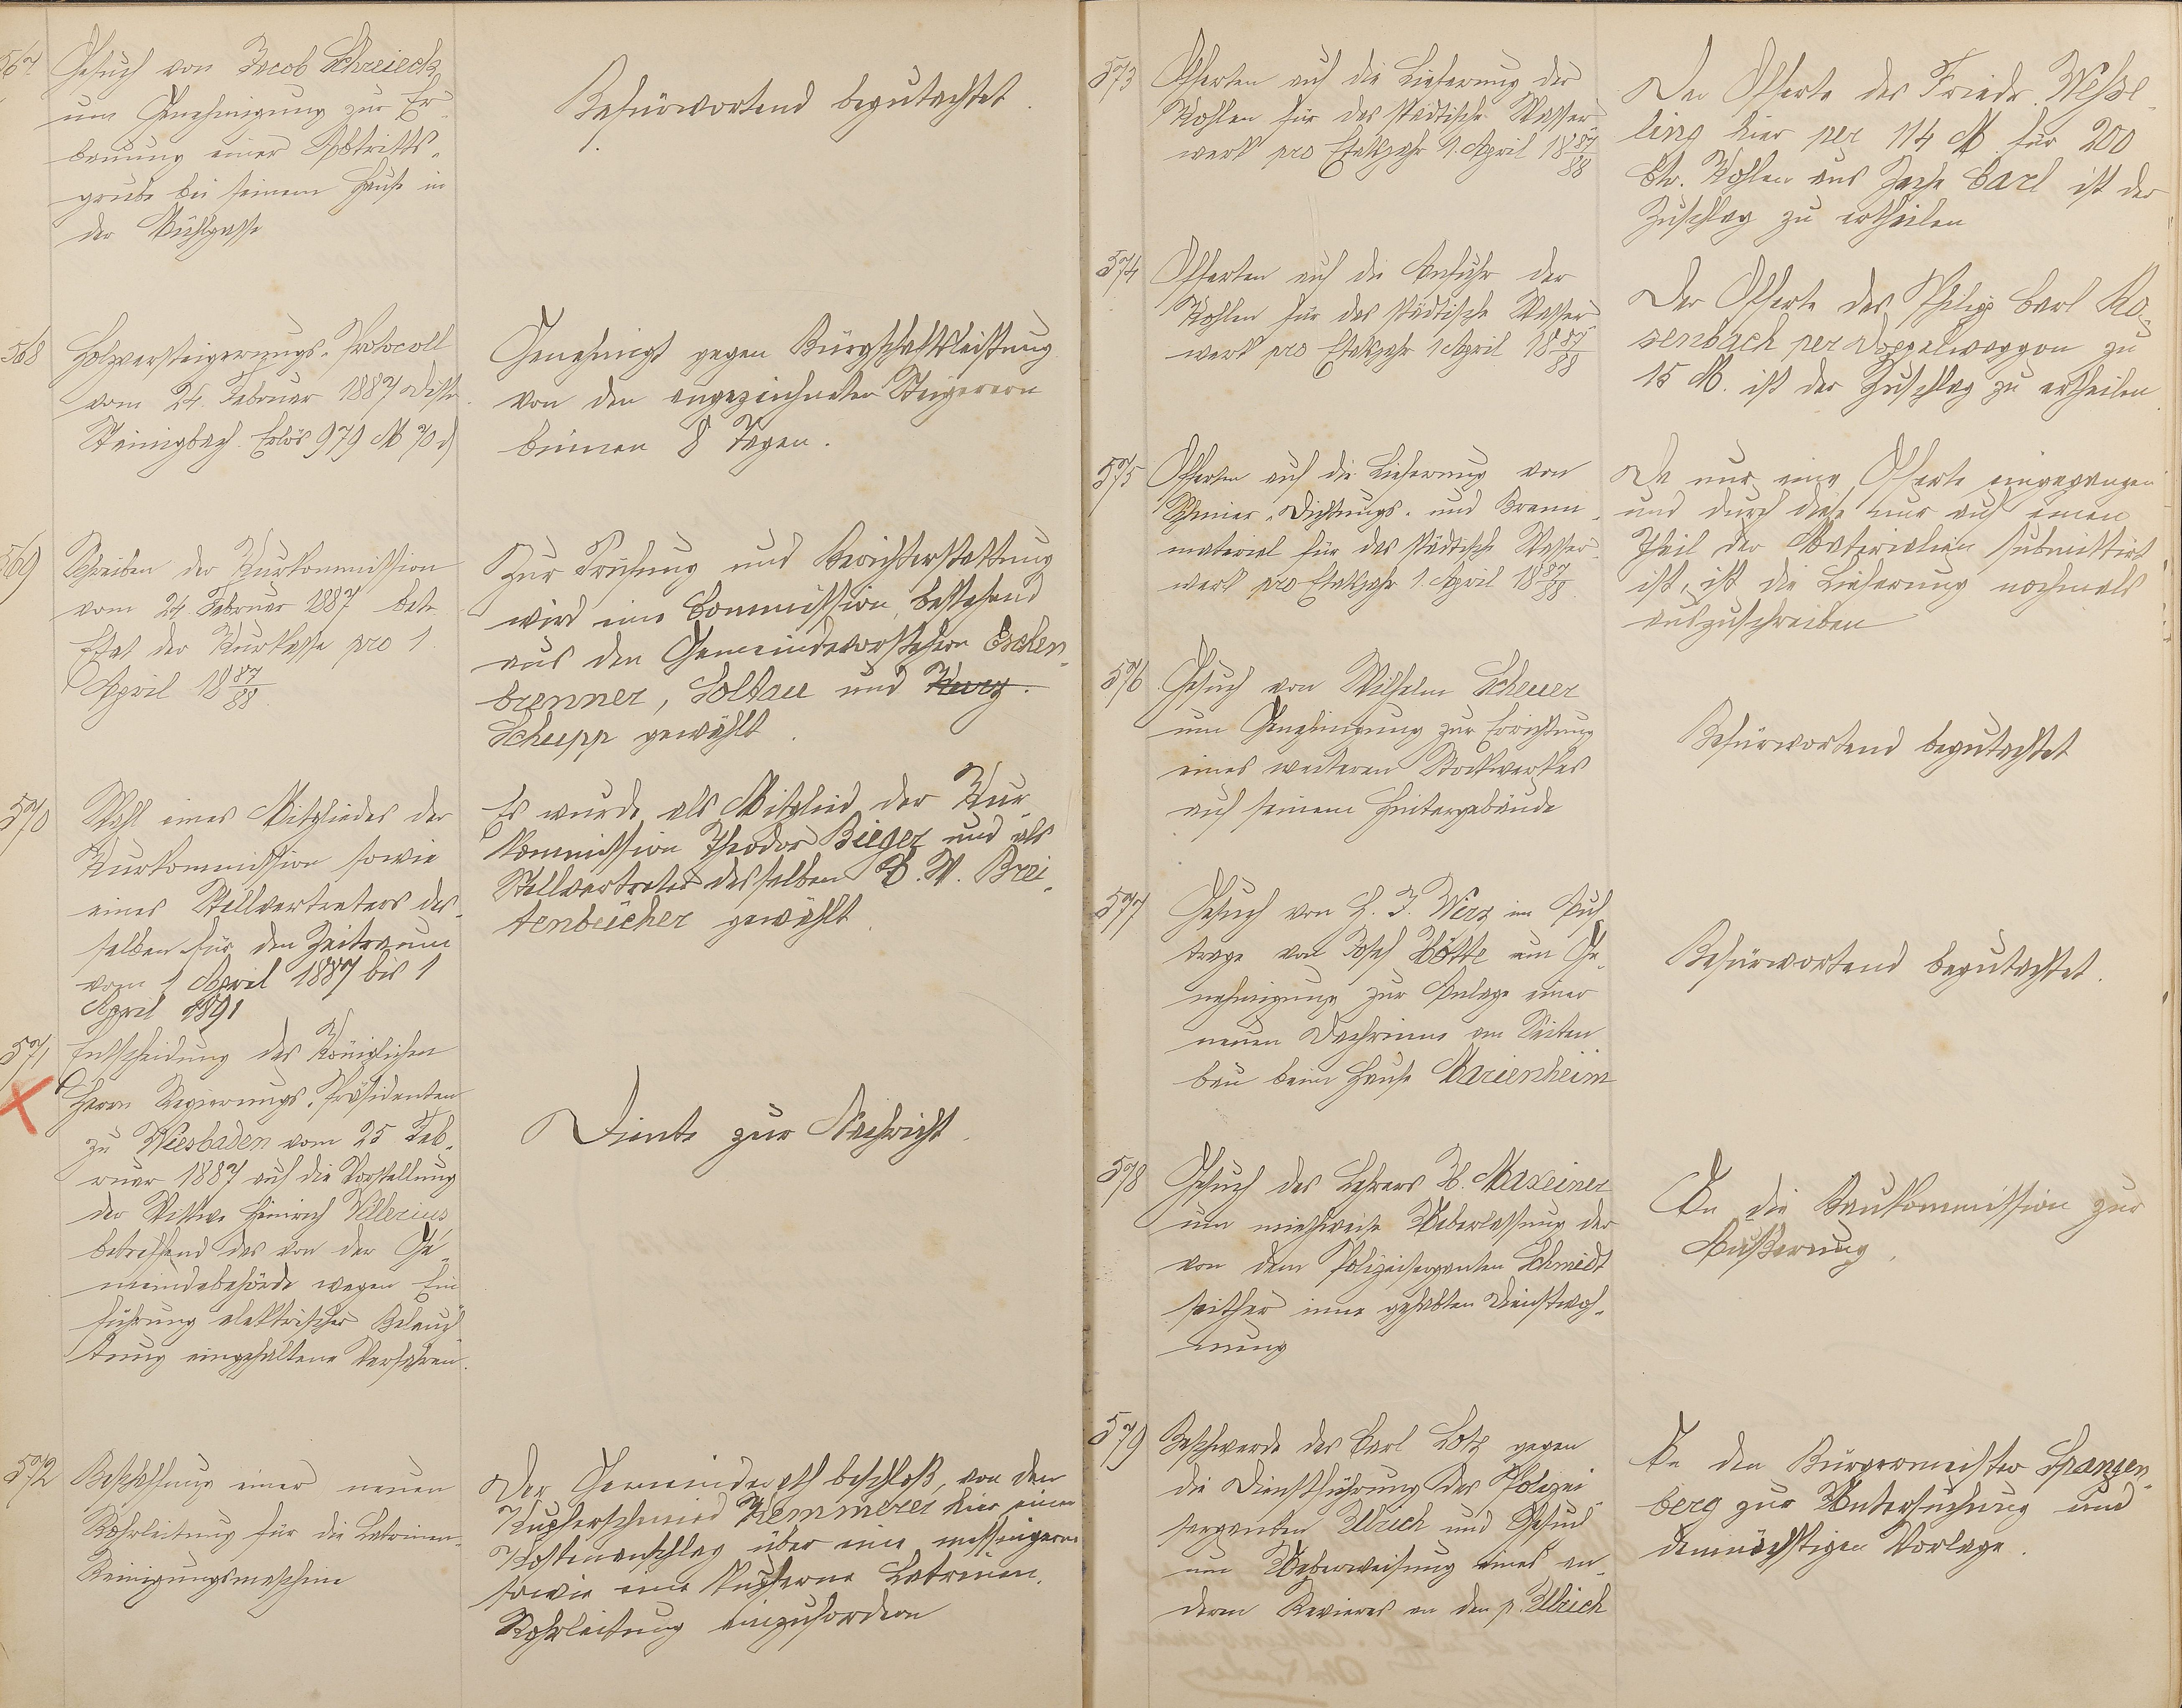 567
Gesuch von Jacob Schreieck
um Genehmigung zur Er-
bauung einer Abtritts-
grube bei seinem Hause in
der Bühlgasse
Befürwortend begutachtet.
568
Holzversteigerungs-Protocoll
vom 24. Februar 1887 Distr.
Steinigbach. Erlös 979 M 70 d
Genehmigt gegen Bürgschaftsleistung
von den angezeichneten Steigerern
binnen 8 Tagen.
569
Schreiben der Kurkommission
vom 24. Februar 1887 betr.
Etat der Kurkasse pro 1.
April 18 87/88.
Zur Prüfung und Berichterstattung
wird eine Commission, bestehend
aus den Gemeindevorstehern Eschen-
brenner, Soltau und Kurz.
Schupp gewählt.
570
Wahl eines Mitgliedes der
Kurkommission sowie
eines Stellvertreters des-
selben für den Zeitraum
vom 1 April 1887 bis 1
April 1891
Es wurde als Mitglied der Kur-
kommission Theodor Bieger und als
Stellvertreter desselben B. W. Brei-
tenbücher gewählt.
571
Entscheidung des Königlichen
Herrn Regierungs-Präsidenten
zu Wiesbaden vom 25 Feb-
ruar 1887 auf die Vorstellung
der Wittwe Heinrich Vellerius
betreffend das von der Ge-
meindebehörde wegen Ein
führung elektrischer Beleuch-
tung eingehaltene Verfahren.
Diente zur Nachricht.
572
Beschaffung einer neuen
Rohrleitung für die Latrinen-
Reinigungsmaschine
Der Gemeinderath beschloß, von dem
Kupferschmied Kemmerer hier einen
Kostenanschlag über eine messingerne
sowie eine kupferne Latrinen-
Rohrleitung einzufordern
573
Offerten auf die Lieferung der
Kohlen für das städtische Wasser-
werk pro Etatsjahr 1. April 18 87/88
Der Offerte des Friedr. Wesse-
ling hier per 114 M. für 200
Ctr. Kohlen aus Zeche Carl ist der
Zuschlag zu ertheilen
574
Offerten auf die Anfuhr der
Kohlen für das städtische Wasser-
werk pro Etatsjahr 1 April 18 87/88
Der Offerte des Philipp Carl Ro-
senbach per Doppelwaggon zu
15 M. ist der Zuschlag zu ertheilen.
575
Offerten auf die Lieferung von
Schmier-, Dichtungs- und Brenn-
material für das städtische Wasser-
werk pro Etatsjahr 1. April 18 87/88.
Da nur eine Offerte eingegangen
und durch diese nur auf einen
Theil der Materialien submittirt
ist, ist die Lieferung nochmals
auszuschreiben
576
Gesuch von Wilhelm Scheuer
um Genehmigung zur Errichtung
eines weiteren Stockwerkes
auf seinem Hintergebäude
Befürwortend begutachtet
577
Gesuch von H. J. Werz im Auf-
trage von Josef Hötte um Ge-
nehmigung zur Anlage einer
neuen Dachrinne am Seiten
bau beim Hause Marienheim
Befürwortend begutachtet.
578
Gesuch des Lehrers H. Maxeiner
um miethweise Ueberlassung der
von dem Polizeisergeanten Schmidt
seither inne gehabten Dienstwoh-
nung
An die Baukommission zur
Äußerung.
579
Beschwerde des Carl Lotz gegen
die Dienstführung des Polizei-
sergeanten Ulrich und Gesuch
um Ueberweisung eines an-
deren Revieres an den p. Ulrich
An den Bürgermeister Spangen-
berg zur Untersuchung und
demnächstigen Vorlage.